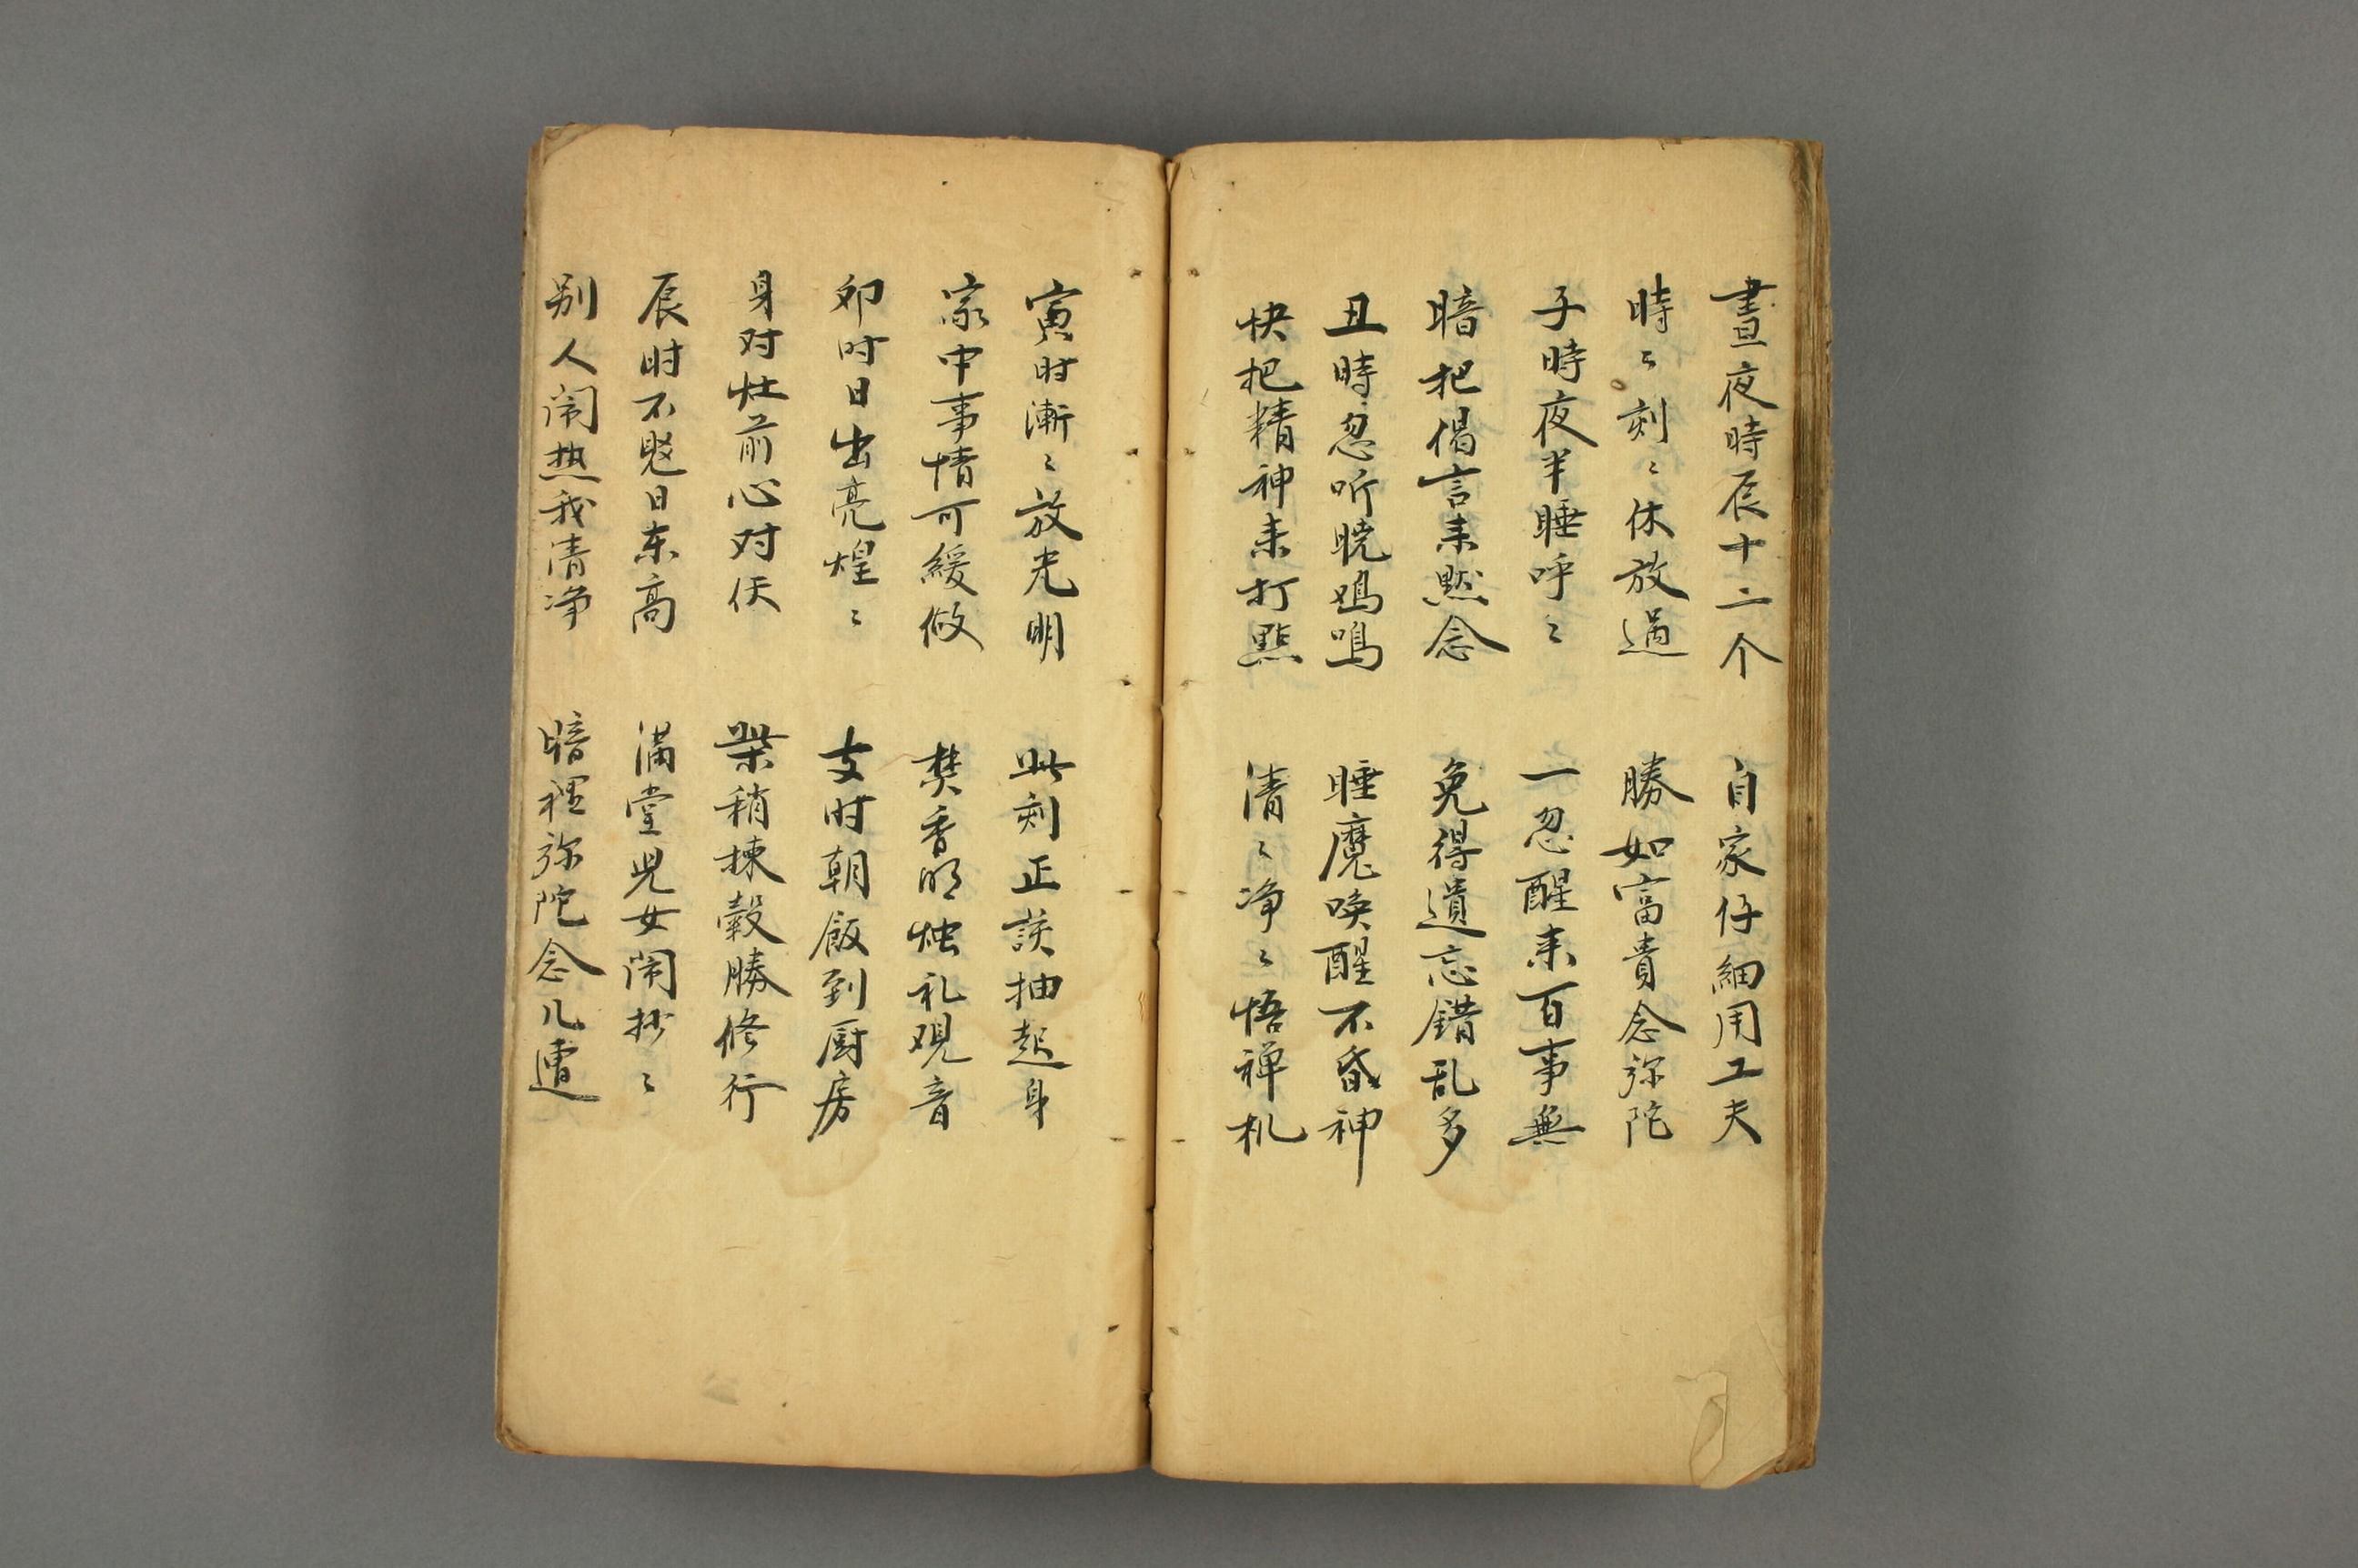 晝夜時辰十二个 自家仔細用工夫
時〻刻〻休放過 勝如富貴念弥陀
子時夜半睡呼〻 一忽醒来百事無
暗把偈言来默念 免得遺忘錯乱多
丑時忽听曉鳴 睡魔喚醒不昏神
快把精神来打點 清〻净〻悟禅机
寅时漸〻放光明 此刻正該抽起身
家中事情可緩做 焚香明烛礼观音
卯时日出亮煌〻 支时朝飯到厨房
身对灶前心对佛 柴稍拣穀勝修行
辰时不覺日东高 满堂兒女闹抄〻
别人闹热我清净 暗裡弥陀念几遭